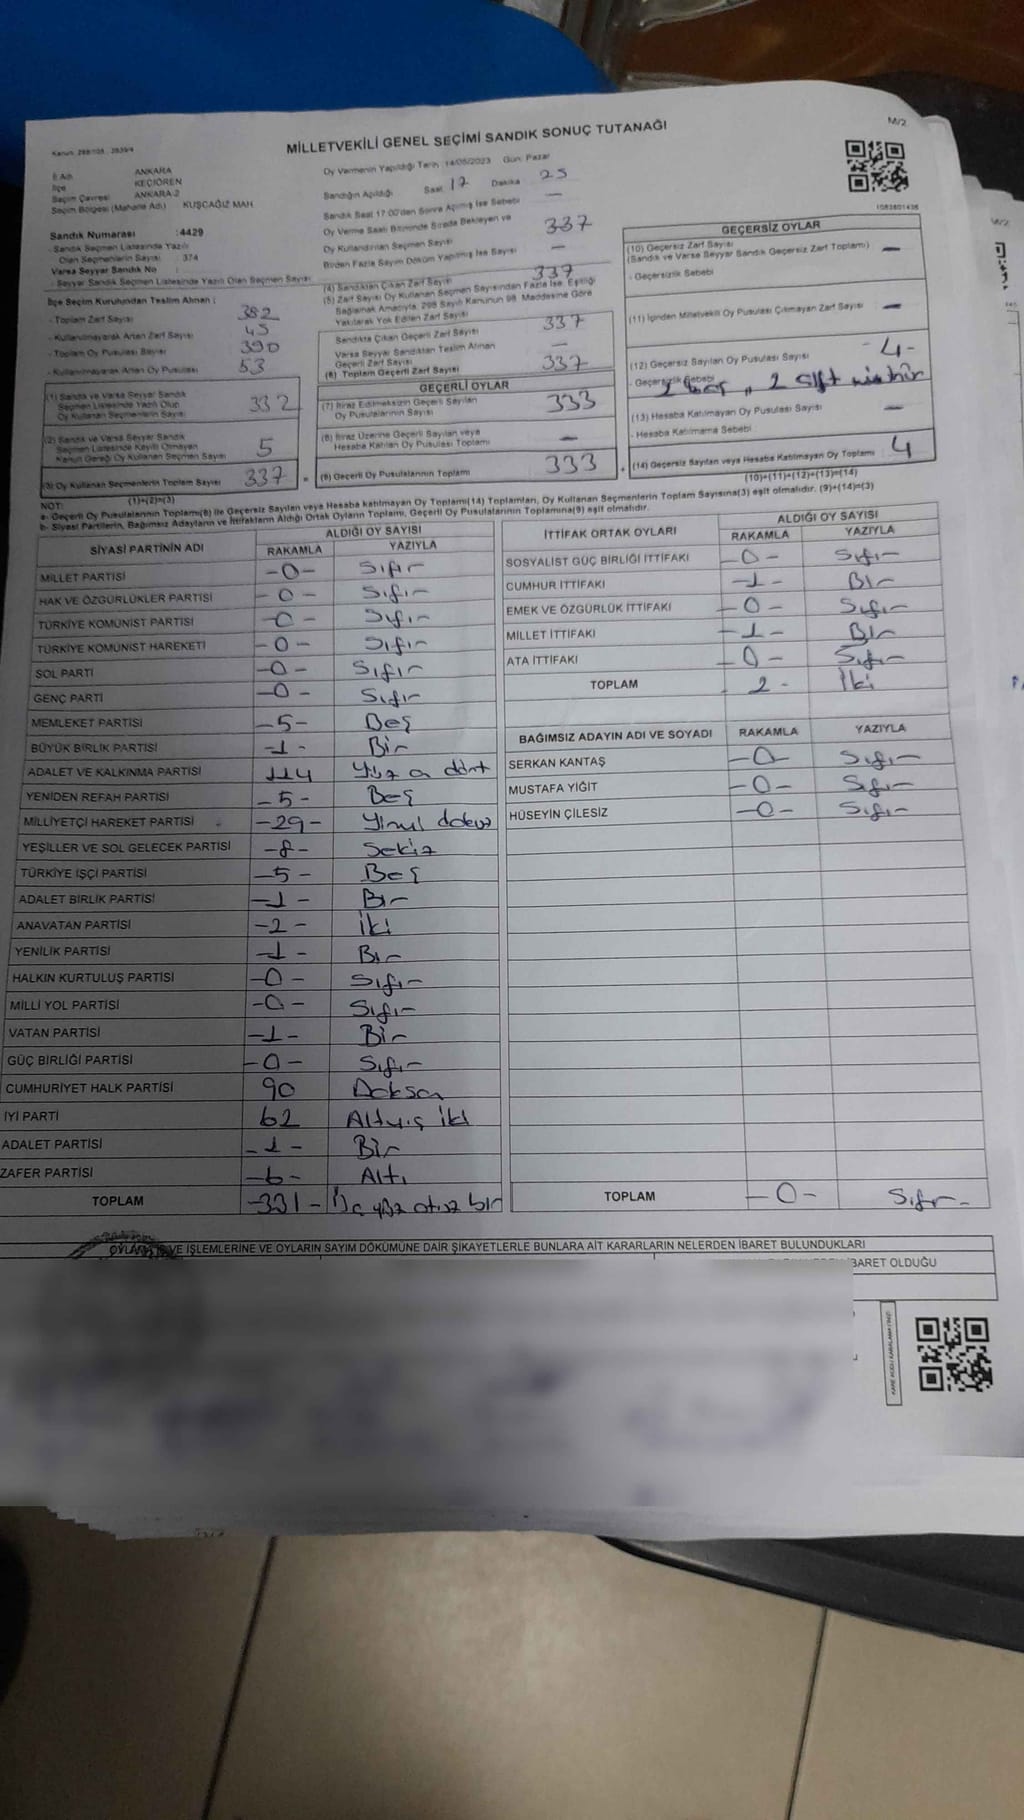 M/2
MİLLETVEKİLİ GENEL SEÇİMİ SANDIK SONUÇ TUTANAĞI
İl Adı ANKARA
İlçe KEÇİÖREN
Seçim Çevresi ANKARA-2
Seçim Bölgesi (Mahalle Adı) KUŞCAĞIZ MAH
Oy Vermenin Yapıldığı Tarih :14/05/2023 Gün: Pazar
Sandığın Açıldığı Saat 17 Dakika 25
Sandık Saat 17:00'den Sonra Açılmış İse Sebebi —
Oy Verme Saati Bitiminde Sırada Bekleyen ve
Oy Kullandırılan Seçmen Sayısı 337
Birden Fazla Sayım Döküm Yapılmış İse Sayısı —
Sandık Numarası :4429
- Sandık Seçmen Listesinde Yazılı
Olan Seçmenlerin Sayısı 374
Varsa Seyyar Sandık No
- Seyyar Sandık Seçmen Listesinde Yazılı Olan Seçmen Sayısı
İlçe Seçim Kurulundan Teslim Alınan :
- Toplam Zarf Sayısı 382
- Kullanılmayarak Artan Zarf Sayısı 45
- Toplam Oy Pusulası Sayısı 390
- Kullanılmayarak Artan Oy Pusulası 53
(1) Sandık ve Varsa Seyyar Sandık
Seçmen Listesinde Yazılı Olup
Oy Kullanan Seçmenlerin Sayısı 332
(2) Sandık ve Varsa Seyyar Sandık
Seçmen Listesinde Kayıtlı Olmayan
Kanun Gereği Oy Kullanan Seçmen Sayısı 5
(3) Oy Kullanan Seçmenlerin Toplam Sayısı 337
(1)+(2)=(3)
(4) Sandıktan Çıkan Zarf Sayısı 337
(5) Zarf Sayısı Oy Kullanan Seçmen Sayısından Fazla İse, Eşitliği
Sağlamak Amacıyla, 298 Sayılı Kanunun 98. Maddesine Göre
Yakılarak Yok Edilen Zarf Sayısı
Sandıkta Çıkan Geçerli Zarf Sayısı 337
Varsa Seyyar Sandıktan Teslim Alınan
Geçerli Zarf Sayısı —
(6) Toplam Geçerli Zarf Sayısı 337
GEÇERLİ OYLAR
(7) İtiraz Edilmeksizin Geçerli Sayılan
Oy Pusulalarının Sayısı 333
(8) İtiraz Üzerine Geçerli Sayılan veya
Hesaba Katılan Oy Pusulası Toplamı —
(9) Geçerli Oy Pusulalarının Toplamı 333
GEÇERSİZ OYLAR
(10) Geçersiz Zarf Sayısı
(Sandık ve Varsa Seyyar Sandık Geçersiz Zarf Toplamı) —
- Geçersizlik Sebebi
(11) İçinden Milletvekili Oy Pusulası Çıkmayan Zarf Sayısı —
(12) Geçersiz Sayılan Oy Pusulası Sayısı -4-
- Geçersizlik Sebebi 2 boş, 2 çift mühür
(13) Hesaba Katılmayan Oy Pusulası Sayısı —
- Hesaba Katılmama Sebebi
(14) Geçersiz Sayılan veya Hesaba Katılmayan Oy Toplamı 4
(10)+(11)+(12)+(13)=(14)
NOT:
a- Geçerli Oy Pusulalarının Toplamı(9) ile Geçersiz Sayılan veya Hesaba katılmayan Oy Toplamı(14) Toplamları, Oy Kullanan Seçmenlerin Toplam Sayısına(3) eşit olmalıdır. (9)+(14)=(3)
b- Siyasi Partilerin, Bağımsız Adayların ve İttifakların Aldığı Ortak Oyların Toplamı, Geçerli Oy Pusulalarının Toplamına(9) eşit olmalıdır.
SİYASİ PARTİNİN ADI ALDIĞI OY SAYISI
RAKAMLA YAZIYLA
MİLLET PARTİSİ -0- Sıfır
HAK VE ÖZGÜRLÜKLER PARTİSİ -0- Sıfır
TÜRKİYE KOMÜNİST PARTİSİ -0- Sıfır
TÜRKİYE KOMÜNİST HAREKETİ -0- Sıfır
SOL PARTİ -0- Sıfır
GENÇ PARTİ -0- Sıfır
MEMLEKET PARTİSİ -5- Beş
BÜYÜK BİRLİK PARTİSİ -1- Bir
ADALET VE KALKINMA PARTİSİ 114 Yüz on dört
YENİDEN REFAH PARTİSİ -5- Beş
MİLLİYETÇİ HAREKET PARTİSİ -29- Yirmi dokuz
YEŞİLLER VE SOL GELECEK PARTİSİ -8- Sekiz
TÜRKİYE İŞÇİ PARTİSİ -5- Beş
ADALET BİRLİK PARTİSİ -1- Bir
ANAVATAN PARTİSİ -2- İki
YENİLİK PARTİSİ -1- Bir
HALKIN KURTULUŞ PARTİSİ -0- Sıfır
MİLLİ YOL PARTİSİ -0- Sıfır
VATAN PARTİSİ -1- Bir
GÜÇ BİRLİĞİ PARTİSİ -0- Sıfır
CUMHURİYET HALK PARTİSİ 90 Doksan
İYİ PARTİ 62 Altmış iki
ADALET PARTİSİ -1- Bir
ZAFER PARTİSİ -6- Altı
TOPLAM -331- Üç yüz otuz bir
İTTİFAK ORTAK OYLARI ALDIĞI OY SAYISI
RAKAMLA YAZIYLA
SOSYALİST GÜÇ BİRLİĞİ İTTİFAKI -0- Sıfır
CUMHUR İTTİFAKI -1- Bir
EMEK VE ÖZGÜRLÜK İTTİFAKI -0- Sıfır
MİLLET İTTİFAKI -1- Bir
ATA İTTİFAKI -0- Sıfır
TOPLAM 2- İki
BAĞIMSIZ ADAYIN ADI VE SOYADI RAKAMLA YAZIYLA
SERKAN KANTAŞ -0- Sıfır
MUSTAFA YİĞİT -0- Sıfır
HÜSEYİN ÇİLESİZ -0- Sıfır
TOPLAM -0- Sıfır-
VE İŞLEMLERİNE VE OYLARIN SAYIM DÖKÜMÜNE DAİR ŞİKAYETLERLE BUNLARA AİT KARARLARIN NELERDEN İBARET BULUNDUKLARI
BARET OLDUĞU